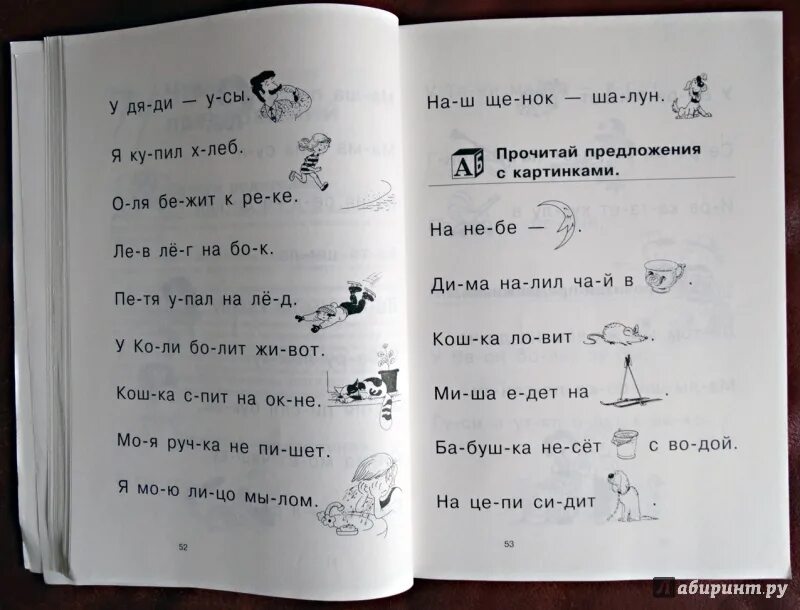 У дя-ди — у-сы.
Я ку-пил х-леб.
О-ля бе-жит к ре-ке.
Ле-в лё-г на бо-к.
Пе-тя у-пал на лё-д.
У Ко-ли бо-лит жи-вот.
Кош-ка с-пит на ок-не.
Мо-я руч-ка не пи-шет.
Я мо-ю ли-цо мы-лом.
52
На-ш ще-нок — ша-лун.
А
Прочитай предложения
с картинками.
На не-бе — .
Ди-ма на-лил ча-й в .
Кош-ка ло-вит .
Ми-ша е-дет на .
Ба-буш-ка не-сёт с во-дой.
На це-пи си-дит .
53
Лабиринт.ру